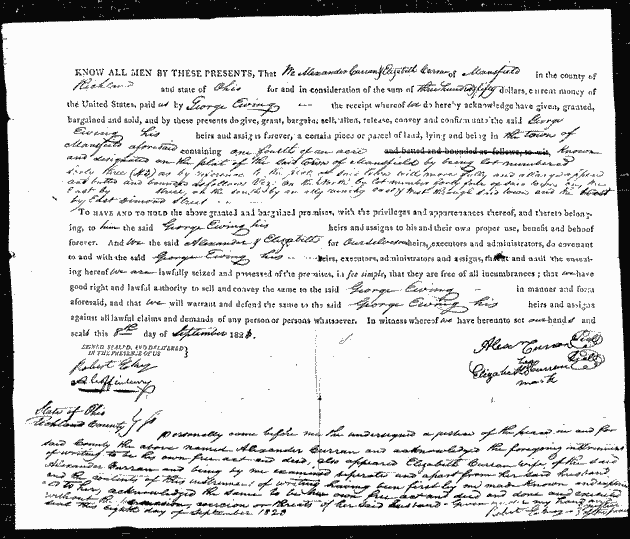 KNOW ALL MEN BY THESE PRESENTS, That We Alexander Curran & Elizabeth Curran of Mansfield in the county of
Richland and state of Ohio for and in consideration of the sum of three hundred fifty dollars, current money of
the United States, paid us by George Ewing the receipt whereof we do hereby acknowledge have given, granted,
bargained and sold, and by these presents do give, grant, bargain, sell, alien, release, convey and confirm unto the said George
Ewing his heirs and assigns forever, a certain piece or parcel of land, lying and being in the town of
Mansfield aforesaid containing one fourth of an acre and butted and bounded as follows, to wit, known
and designated on the plat of the said town of Mansfield by being lot numbered
sixty three as by reference to the plat of said town will more fully and at large appear
and butted and bounded as follows Viz: on the North by lot number forty four of said town on the
East by street, on the south by an alley running east & west through said town and the West
by East Diamond Street
TO HAVE AND TO HOLD the above granted and bargained premises, with the privileges and appurtenances thereof, and thereto belong-
ing, to him the said George Ewing his heirs and assigns to his and their own proper use, benefit and behoof
forever. And We the said Alexander & Elizabeth for Ourselves heirs, executors and administrators, do covenant
to and with the said George Ewing his heirs, executors, administrators and assigns, that at and until the enseal-
ing hereof we are lawfully seized and possessed of the premises, in fee simple, that they are free of all incumbrances; that we have
good right and lawful authority to sell and convey the same to the said George Ewing in manner and form
aforesaid, and that we will warrant and defend the same to the said George Ewing his heirs and assigns
against all lawful claims and demands of any person or persons whatsoever. In witness whereof we have hereunto set our hands and
seals this 8th day of September 1823.
SIGNED SEALED, AND DELIVERED
IN THE PRESENCE OF US
Alexr Curran Seal
Robert
her
Elizabeth Curran Seal
mark
State of Ohio
Richland County
personally came before me the undersigned a justice of the peace in and for
said County the above named Alexander Curran and acknowledged the foregoing instrument
of writing to be his own free act and deed, also appeared Elizabeth Curran wife of the said
Alexander Curran and being by me examined seperate and apart from her said husband
and the contents of this instrument of writing having been first by me made known and explained
to her, acknowledged the same to be her own free act and deed and done and executed
without the coercion or threats of her said husband. Given under my hand and
seal this eighth day of September 1823
Robert